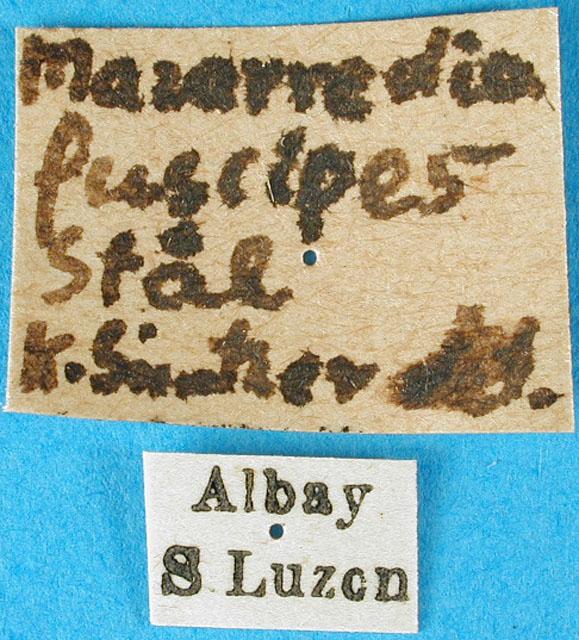 Mazarredia
fuscipes
Stål
K. Günther
Albay
S Luzon